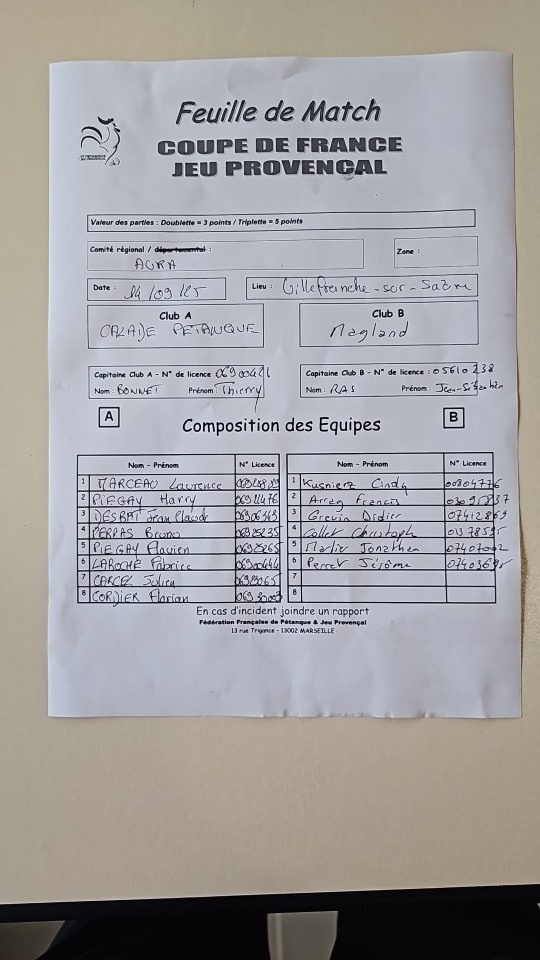 Feuille de Match
COUPE DE FRANCE
JEU PROVENÇAL
Valeur des parties : Doublette = 3 points / Triplette = 5 points
Comité régional / départemental :
AURA
Zone :
Date : 14/09/25
Lieu : Villefranche-sur-Saône
Club A
CALADE PETANQUE
Club B
Magland
Capitaine Club A - N° de licence 06900421
Nom : BONNET Prénom : Thierry
Capitaine Club B - N° de licence : 05610238
Nom : RAS Prénom : Jean-Sébastien
A
Composition des Equipes
B
Nom - Prénom N° Licence
1 MARCEAU Laurence
2 PIEGAY Harry 06911476
3 DESBAT Jean Claude 06906343
4 PERPAS Bruno 06925235
5 PIEGAY Flavien 06925265
6 LAROCHE Fabrice 06900444
7 CARCEL Julien
8 CORDIER Florian
Nom - Prénom N° Licence
1 Kusnierz Cindy 00804776
2 Arreg Francis
3 Grevin Didier 07412869
4 Collet Christoph
5 Merlier Jonathan 07407002
6 Perret Jérôme
7
8
En cas d'incident joindre un rapport
Fédération Française de Pétanque & Jeu Provençal
13 rue Trigance - 13002 MARSEILLE